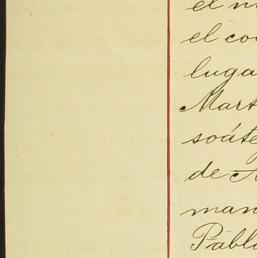 el n
el co
luga
Mart
soáte
de A
man
Pablo